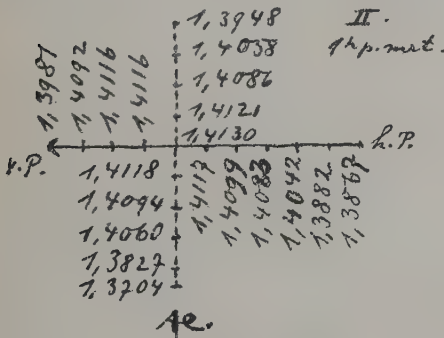 1,3948
II.
1,4038
1 h p. mrt.
1,4086
1,4121
1,4130
1,3981
1,4092
1,4116
1,4116
v.P.
h.P.
1,4118
1,4094
1,4060
1,3827
1,3704
1,4117
1,4099
1,4083
1,4042
1,3882
1,3867
Ae.